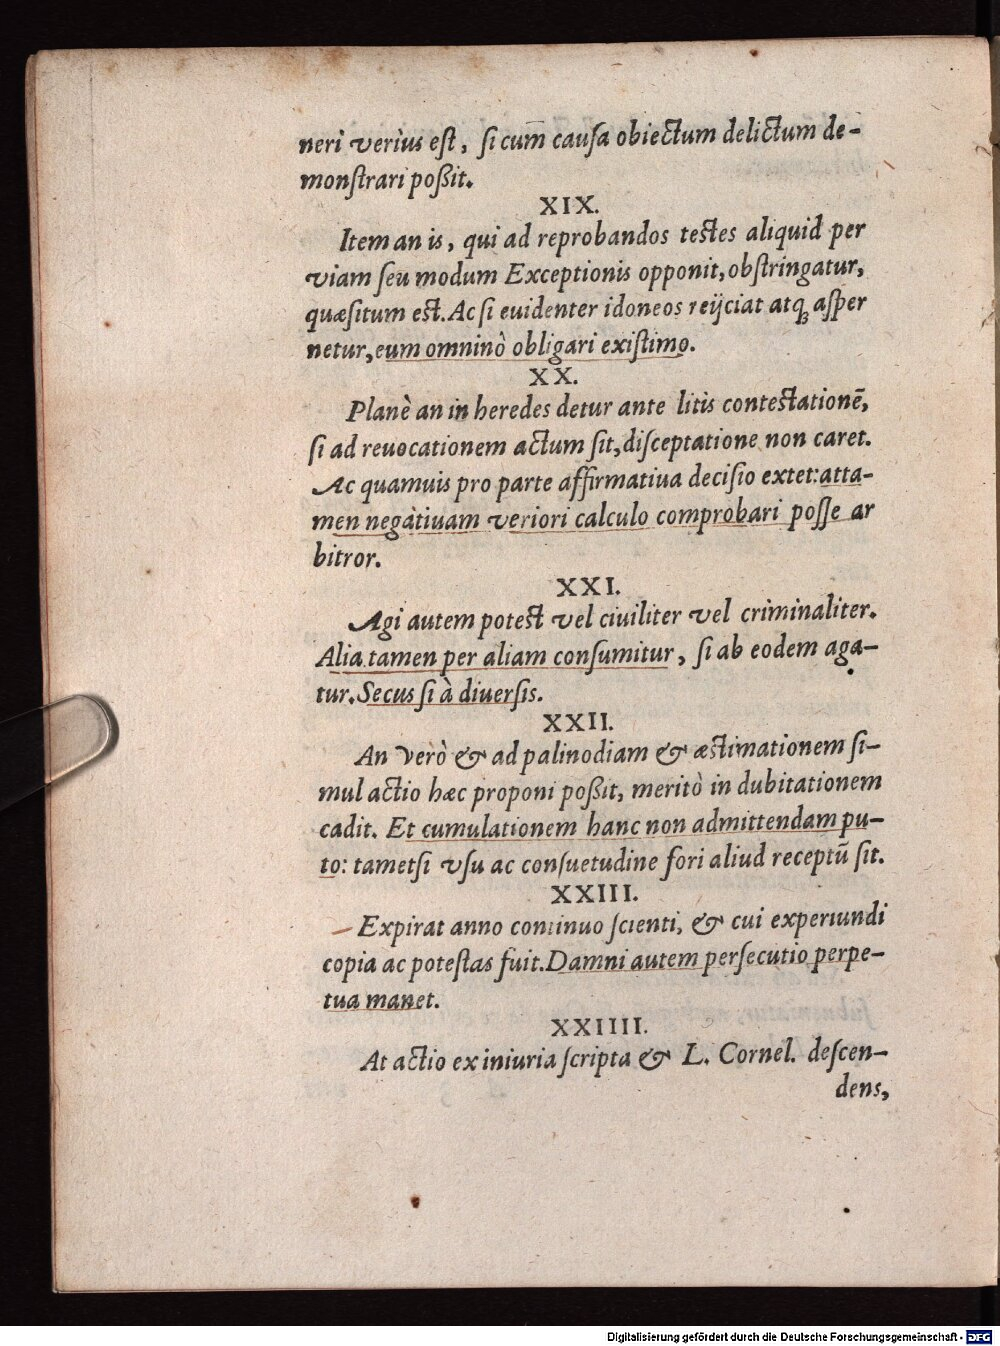 neri veriùs eſt, ſi cum̄ cauſa obiectum delictum de-
monſtrari poßit.
XIX.
Item an is, qui ad reprobandos testes aliquid per
viam ſeu modum Exceptionis opponit, obſtringatur,
quæſitum est. Ac ſi euidenter idoneos reijciat atq́ꝫ aſper
netur, eum omninò obligari exiſtimo.
XX.
Planè an in heredes detur ante litis contestationē,
ſi ad reuocationem actum ſit, diſceptatione non caret.
Ac quamuis pro parte affirmatiua deciſio extet: atta-
men negatiuam veriori calculo comprobari poſſe ar
bitror.
XXI.
Agi autem potest vel ciuiliter vel criminaliter.
Alia tamen per aliam conſumitur, ſi ab eodem aga-
tur. Secus ſi à diuerſis.
XXII.
An verò & ad palinodiam & æstimationem ſi-
mul actio hæc proponi poßit, meritò in dubitationem
cadit. Et cumulationem hanc non admittendam pu-
to: tametſi vſu ac conſuetudine fori aliud receptū ſit.
XXIII.
Expirat anno continuo ſcienti, & cui experiundi
copia ac poteſtas fuit. Damni autem perſecutio perpe-
tua manet.
XXIIII.
At actio ex iniuria ſcripta & L. Cornel. deſcen-
dens,
Digitalisierung gefördert durch die Deutsche Forschungsgemeinschaft - DFG